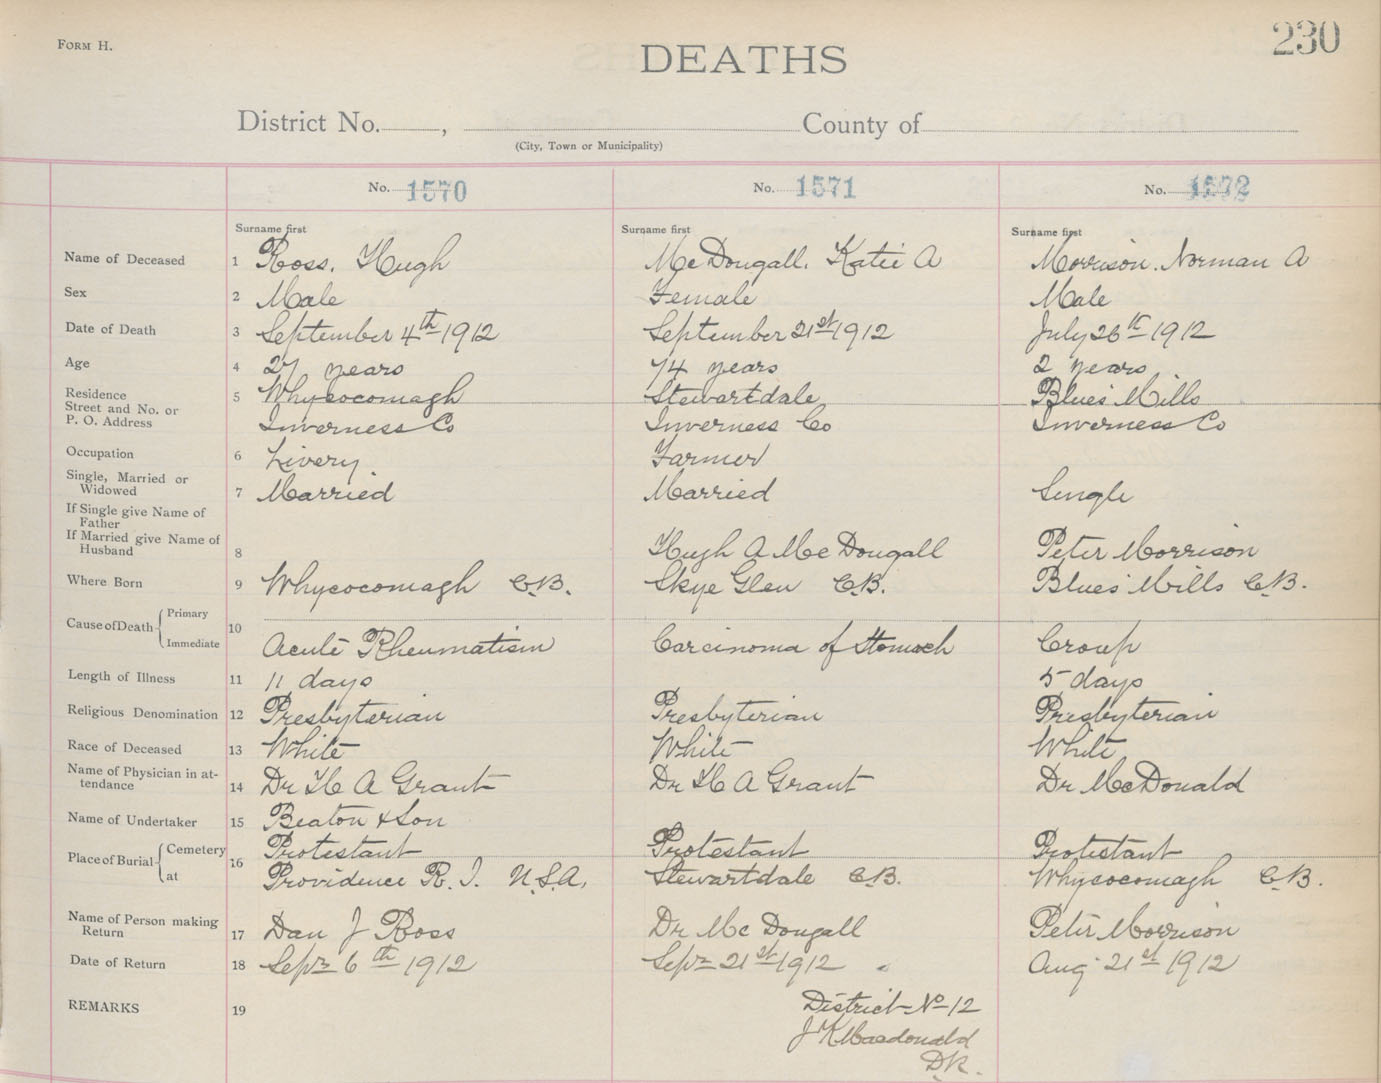 FORM H.
230
DEATHS
District No. , County of
(City, Town or Municipality)
No. 1570 No. 1571 No. 1572
Surname first Surname first Surname first
Name of Deceased 1 Ross, Hugh McDougall, Katie A Morrison, Norman A
Sex 2 Male Female Male
Date of Death 3 September 4th 1912 September 21st 1912 July 26th 1912
Age 4 27 years 74 years 2 years
Residence 5 Whycocomagh Stewartdale Blues Mills
Street and No. or
P. O. Address Inverness Co Inverness Co Inverness Co
Occupation 6 Livery Farmer
Single, Married or
Widowed 7 Married Married Single
If Single give Name of
Father
If Married give Name of
Husband 8 Hugh A McDougall Peter Morrison
Where Born 9 Whycocomagh C.B. Skye Glen C.B. Blues Mills C.B.
Cause of Death Primary 10
Immediate Acute Rheumatism Carcinoma of Stomach Croup
Length of Illness 11 11 days 5 days
Religious Denomination 12 Presbyterian Presbyterian Presbyterian
Race of Deceased 13 White White White
Name of Physician in at-
tendance 14 Dr H A Grant Dr H A Grant Dr McDonald
Name of Undertaker 15 Beaton & Son
Place of Burial Cemetery 16 Protestant Protestant Protestant
at Providence R. I. U.S.A. Stewartdale C.B. Whycocomagh C.B.
Name of Person making
Return 17 Dan J Ross Dr McDougall Peter Morrison
Date of Return 18 Sept 6th 1912 Sept 21st 1912 Aug 21st 1912
REMARKS 19 District No 12
J K Macdonald
D.R.